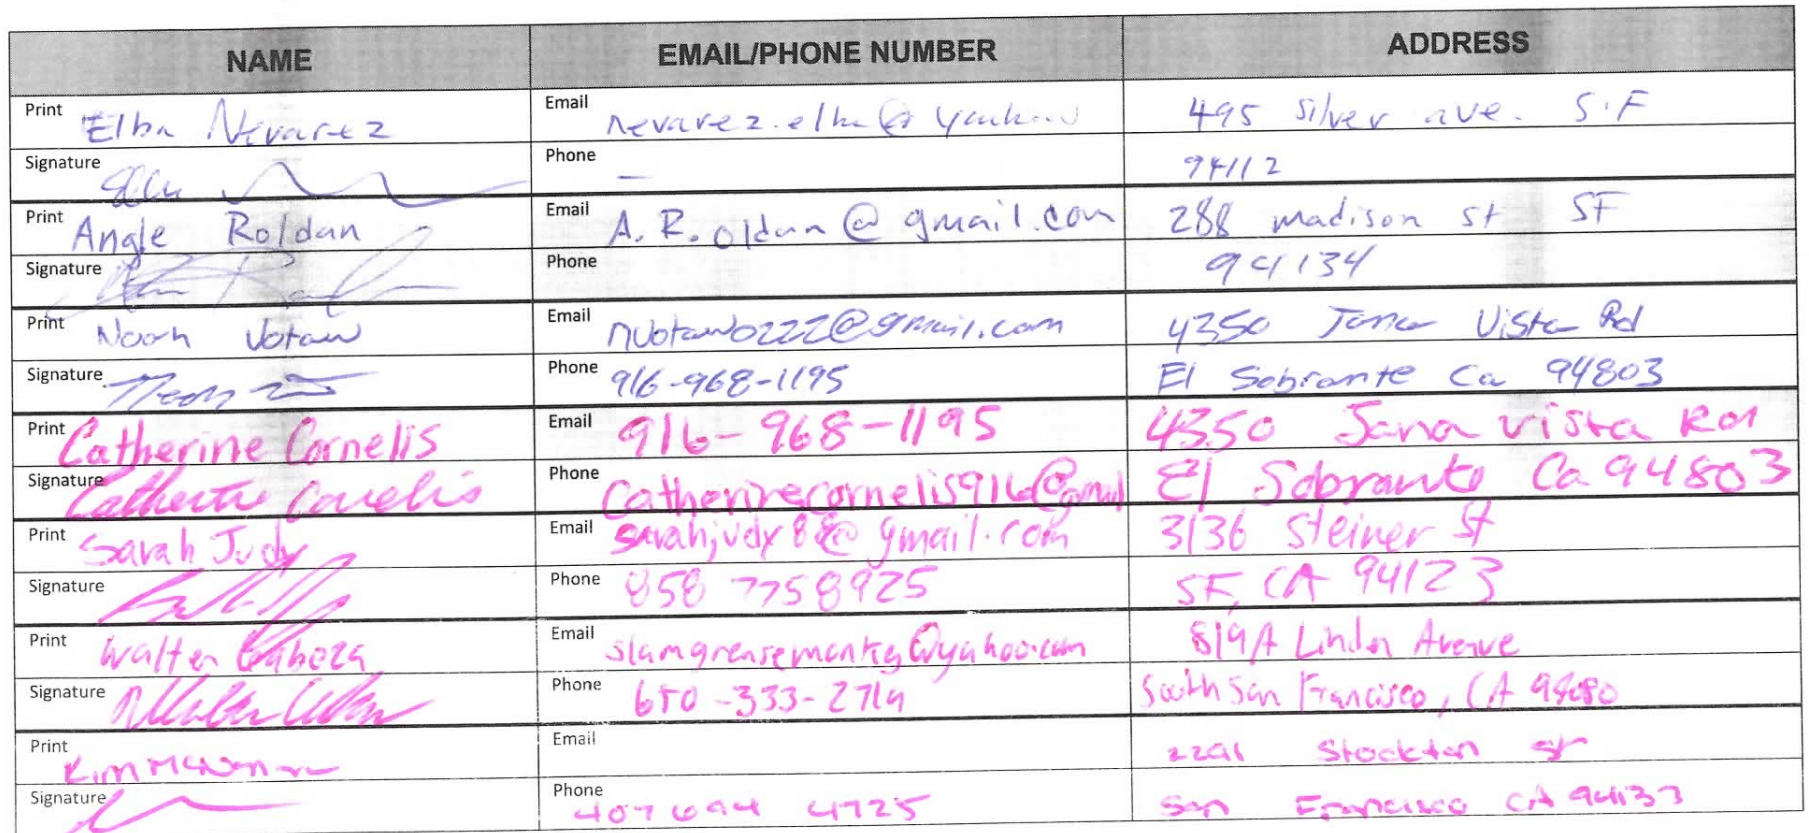 NAME EMAIL/PHONE NUMBER ADDRESS
Print Elba Nevarez Email nevarez.elba@ 495 silver ave. S.F
Signature Phone — 94112
Print Angle Roldan Email A.R.oldan@gmail.com 288 madison st SF
Signature Phone 94134
Print Noah Votaw Email nvotaw0222@gmail.com 4350 Jana Vista Rd
Signature Phone 916-968-1195 El Sobrante Ca 94803
Print Catherine Cornelis Email 916-968-1195 4350 Jana vista Rd
Signature Catherine Cornelis Phone Catherinecornelis916@gmail El Sobrante Ca 94803
Print Sarah Judy Email sarahjudy88@gmail.com 3136 Steiner St
Signature Phone 858 7758925 SF, CA 94123
Print Walter Email slamgreasemonkey@yahoo.com 819A Linden Avenue
Signature Phone 650-333-2719 South San Francisco, CA 94080
Print Kim Email 2291 Stockton st
Signature Phone 407 694 4725 San Francisco CA 94133